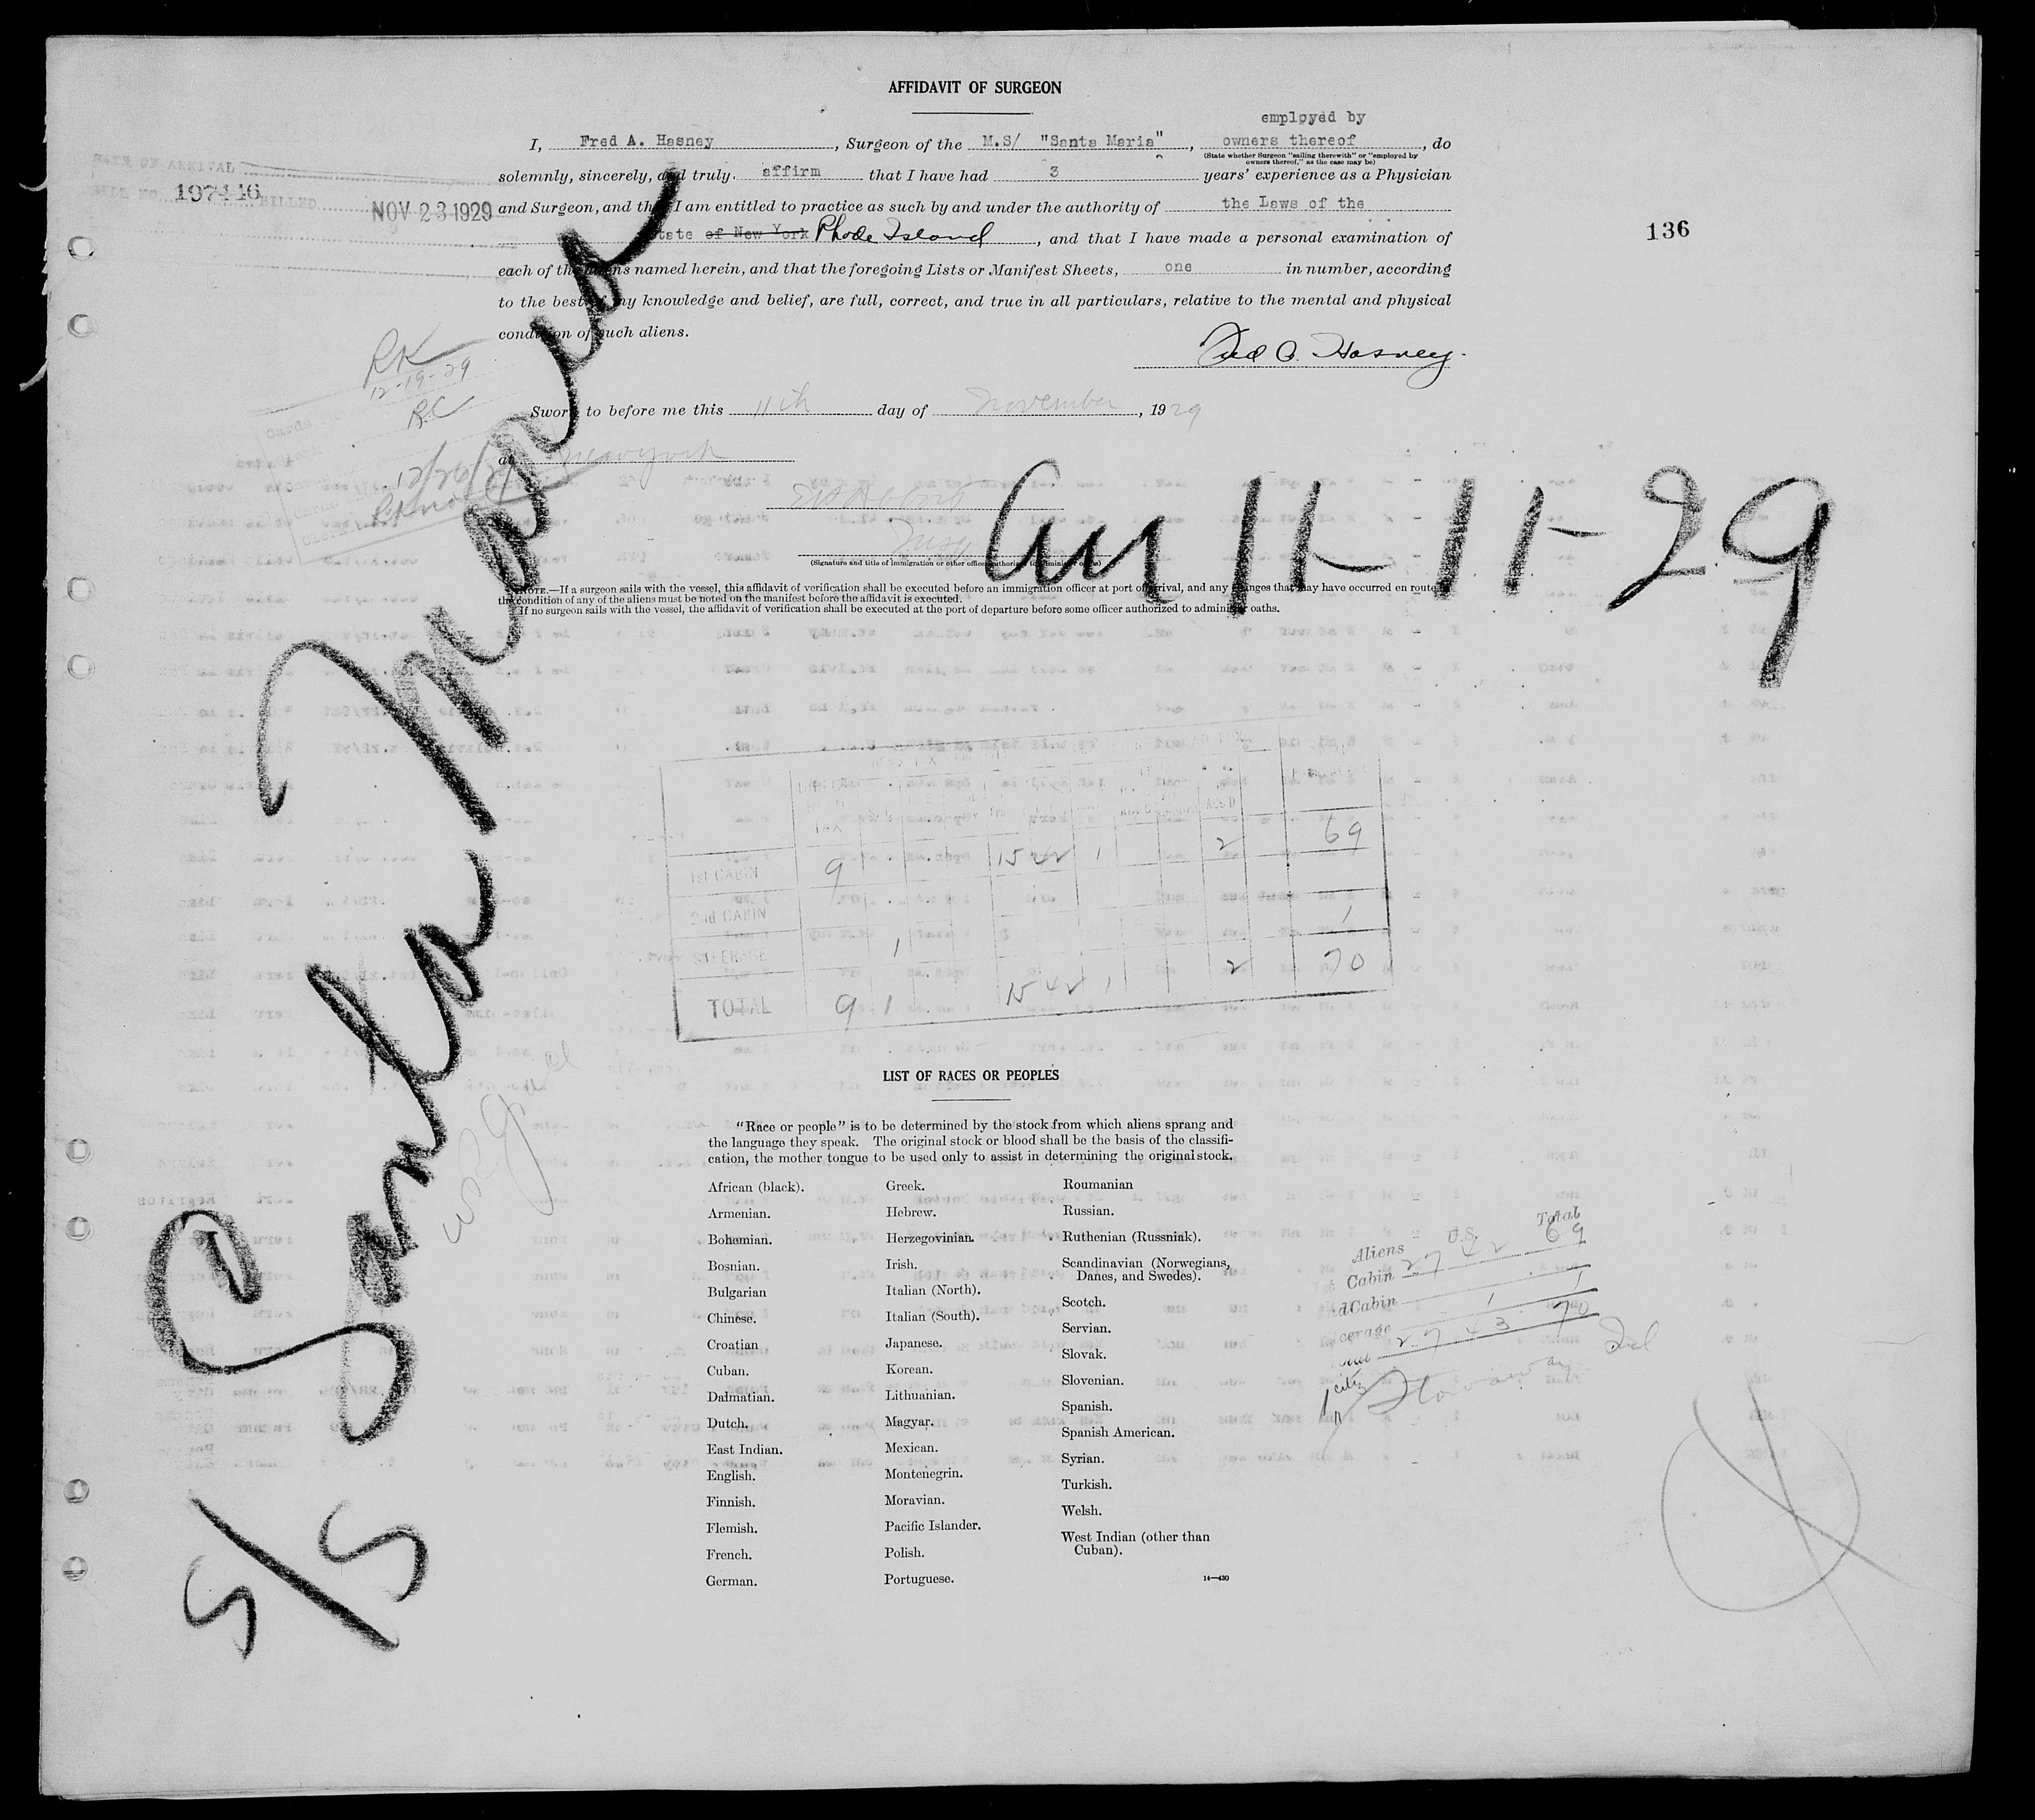 AFFIDAVIT OF SURGEON
employed by
I, Fred A. Hasney, Surgeon of the M.S/ "Santa Maria", owners thereof, do
(State whether Surgeon "sailing therewith" or "employed by
owners thereof," as the case may be)
solemnly, sincerely, and truly affirm that I have had 3 years' experience as a Physician
and Surgeon, and that I am entitled to practice as such by and under the authority of the Laws of the
State of New York Rhode Island, and that I have made a personal examination of
each of the aliens named herein, and that the foregoing Lists or Manifest Sheets, one in number, according
to the best of my knowledge and belief, are full, correct, and true in all particulars, relative to the mental and physical
condition of such aliens.
Fred A. Hasney.
Sworn to before me this 11th day of November, 1929
at New York
(Signature and title of immigration or other officer authorized to administer oaths)
NOTE.—If a surgeon sails with the vessel, this affidavit of verification shall be executed before an immigration officer at port of arrival, and any changes that may have occurred en route
the condition of any of the aliens must be noted on the manifest before the affidavit is executed.
If no surgeon sails with the vessel, the affidavit of verification shall be executed at the port of departure before some officer authorized to administer oaths.
DATE OF ARRIVAL
197446 BILLED NOV 23 1929
136
RK
12-19-29
R.C
12/26/29
S/S Santa Maria
Arr 11-11-29
1st CABIN 9 15 42 1 2 69
2nd CABIN
STEERAGE 1 1
TOTAL 9 1 15 42 1 2 70
LIST OF RACES OR PEOPLES
"Race or people" is to be determined by the stock from which aliens sprang and
the language they speak. The original stock or blood shall be the basis of the classifi-
cation, the mother tongue to be used only to assist in determining the original stock.
African (black).
Armenian.
Bohemian.
Bosnian.
Bulgarian
Chinese.
Croatian
Cuban.
Dalmatian.
Dutch.
East Indian.
English.
Finnish.
Flemish.
French.
German.
Greek.
Hebrew.
Herzegovinian.
Irish.
Italian (North).
Italian (South).
Japanese.
Korean.
Lithuanian.
Magyar.
Mexican.
Montenegrin.
Moravian.
Pacific Islander.
Polish.
Portuguese.
Roumanian
Russian.
Ruthenian (Russniak).
Scandinavian (Norwegians,
Danes, and Swedes).
Scotch.
Servian.
Slovak.
Slovenian.
Spanish.
Spanish American.
Syrian.
Turkish.
Welsh.
West Indian (other than
Cuban).
14—430
Aliens U.S. Total
Cabin 27 42 69
Cabin
1 1
27 43 70